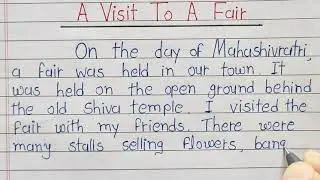 A Visit To A Fair
On the day of Mahashivratri,
a fair was held in our town. It
was held on the open ground behind
the old Shiva temple. I visited the
fair with my friends. There were
many stalls selling flowers, bang